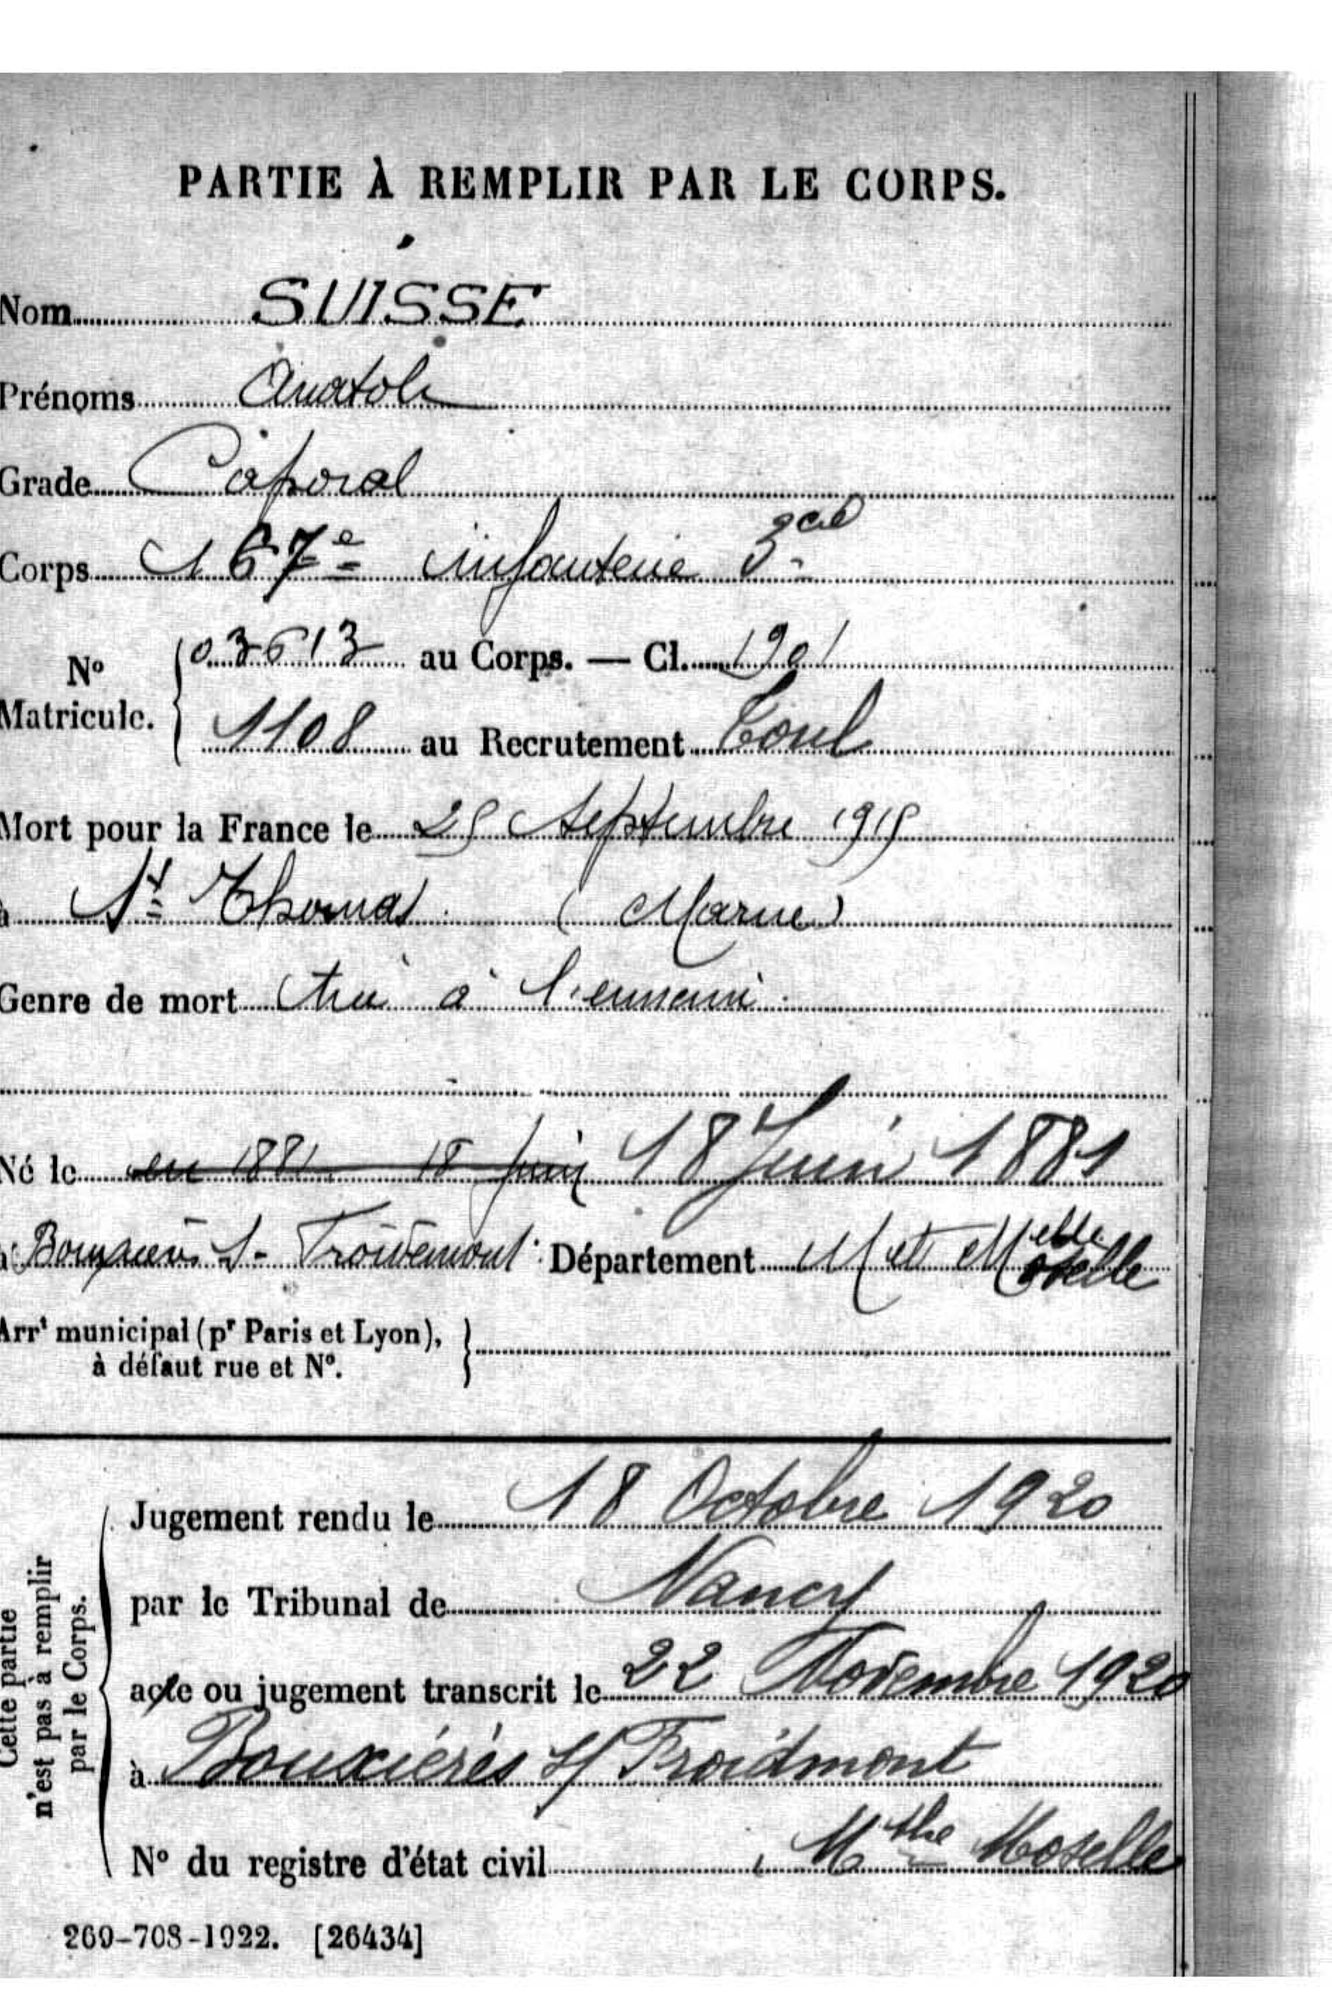 PARTIE À REMPLIR PAR LE CORPS.
Nom SUISSE
Prénoms Anatole
Grade Caporal
Corps 167e infanterie 3e cie
No Matricule. 03613 au Corps. — Cl. 1901
1108 au Recrutement Toul
Mort pour la France le 25 Septembre 1915
à St Thomas (Marne)
Genre de mort tué à l'ennemi.
Né le en 1881 18 juin 18 Juin 1881
à Bouxières S- Froidemont Département M et Melle Moselle
Arrt municipal (pr Paris et Lyon),
à défaut rue et No.
Cette partie
n'est pas à remplir
par le Corps.
Jugement rendu le 18 Octobre 1920
par le Tribunal de Nancy
acte ou jugement transcrit le 22 Novembre 1920
à Bouxiérés s/ Froidmont
No du registre d'état civil Mthe Moselle
269-708-1922. [26434]